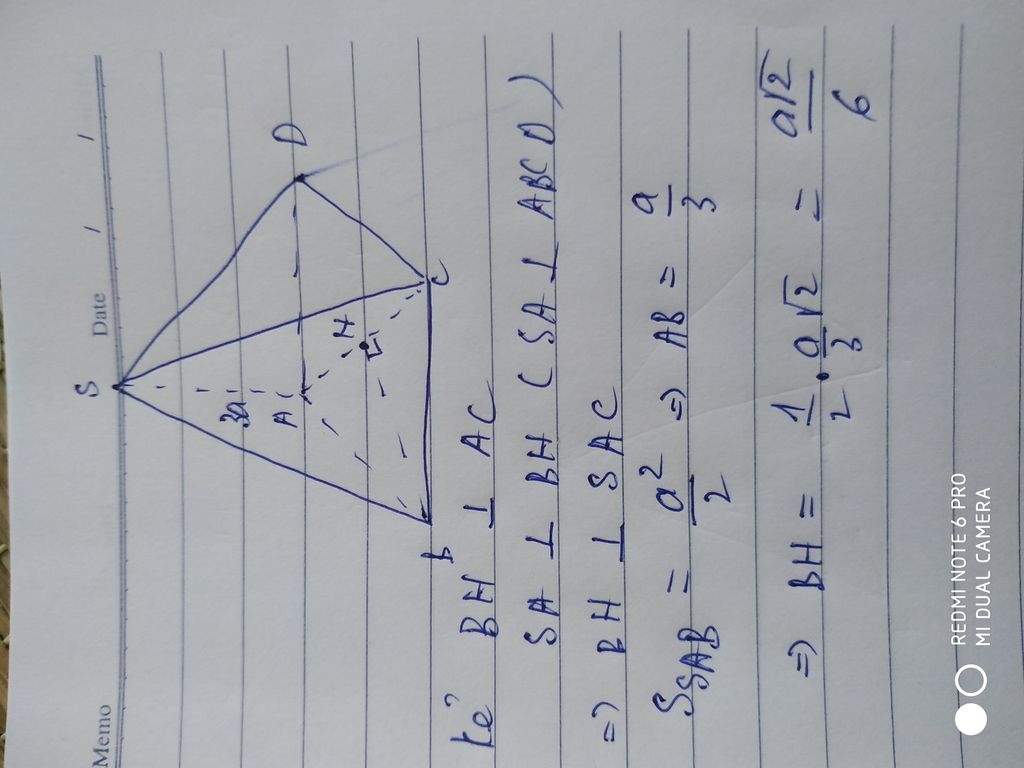 Memo Date / /
S
3a
A
D
H
B
C
Kẻ BH ⊥ AC
SA ⊥ BH ( SA ⊥ ABCD )
=> BH ⊥ SAC
S_SAB = a²/2 => AB = a/3
=> BH = 1/2 . a√2/3 = a√2/6
REDMI NOTE 6 PRO
MI DUAL CAMERA